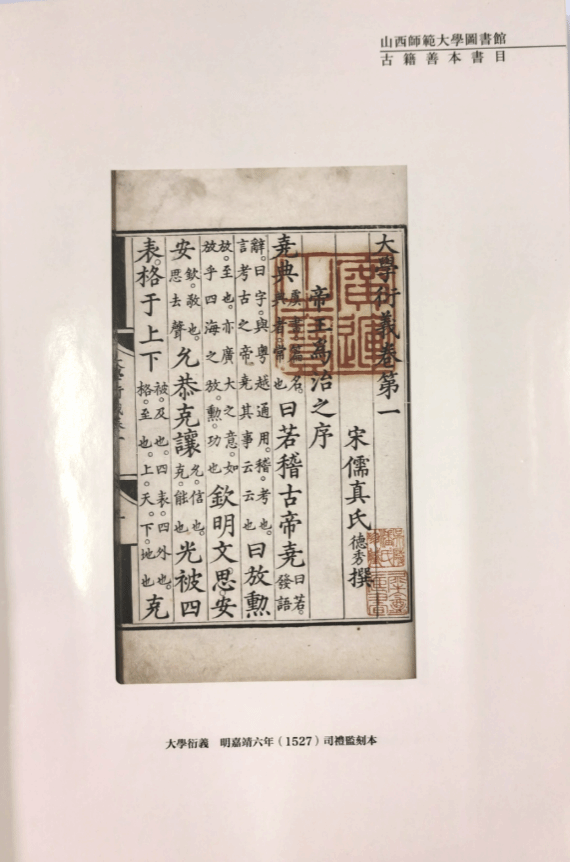 山西師範大學圖書館
古籍善本書目
大學衍義卷第一
宋儒真氏德秀撰
帝王為治之序
堯典虞書篇名。典者常也曰若稽古帝堯曰若。發語
辭。曰字。與粵越通用。稽。考也。言考古之帝堯其事云云也曰放勲
放。至也。亦廣大之意。如放乎四海之放。勲。功也欽明文思安
安欽。敬也。思去聲允恭克讓允。信也。克。能也光被四
表。格于上下被。及也。四表。四外也。格。至也。上。天。下。地也克
廣運之寶
大學衍義 明嘉靖六年（1527）司禮監刻本